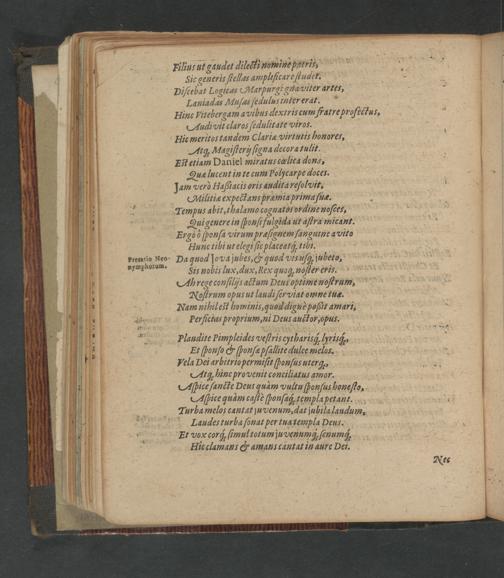 Filius ut gaudet dilecti nomine patris,
Sic generis stellas amplificare studet.
Discebat Logicas Marpurgi gnaviter artes,
Laniadas Musas sedulus inter erat.
Hinc Vitebergam avibus dextris cum fratre profectus,
Audivit claros sedulitate viros.
Hic meritos tandem Clariæ virtutis honores,
Atq; Magisterij signa decora tulit.
Est etiam Daniel miratus cœlica dona,
Quæ lucent in te cum Polycarpe doces.
Jam verò Hastacis oris audita resolvit,
Militiæ expectans præmia prima suæ.
Tempus abit, thalamo cognatos ordine nosces,
Qui genere in sponsæ fulgida ut astra micant.
Ergò ô sponsa virum præsignem sanguine avito
Hunc tibi ut elegi sic placeatq; tibi.
Precatio Neo-
nymphorum.
Da quod Jova jubes, & quod vis usq; jubeto,
Sis nobis lux, dux, Rex quoq; noster eris.
Ah rege consilijs actum Deus optime nostrum,
Nostrum opus ut laudi serviat omne tuæ.
Nam nihil est hominis, quod dignè possit amari,
Perficias proprium, ni Deus auctor, opus.
Plaudite Pimpleides vestris cytharisq; lyrisq;,
Et sponso & sponsæ psallite dulce melos.
Vela Dei arbitrio permisit sponsus uterq;,
Atq; hinc provenit conciliatus amor.
Aspice sancte Deus quàm vultu sponsus honesto,
Aspice quàm castè sponsaq; templa petant.
Turba melos cantat juvenum, dat jubila laudum,
Laudes turba sonat per tua templa Deus.
Et vox corq; simul totum juvenumq; senumq;
Hic clamans & amans cantat in aure Dei.
Nec